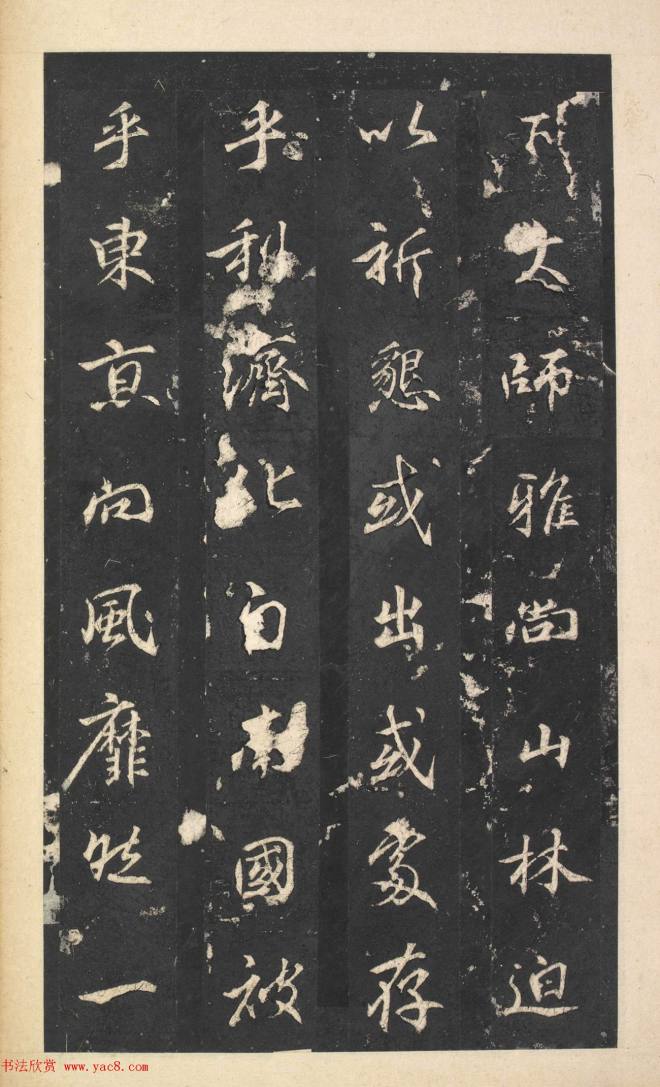 大師雅尚山林迫
以祈懇或出或處存
乎利濟化自南國被
乎東京向風靡然一
书法欣赏 www.yac8.com